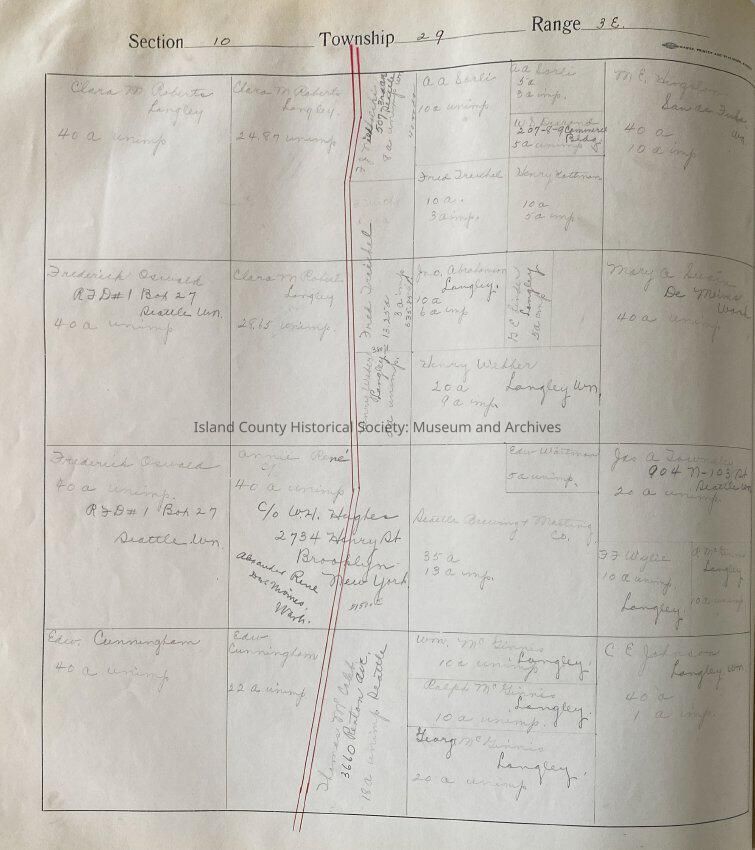 Section 10 Township 29 Range 3 E.
Clara M Roberts
Langley
40 a unimp
Clara M Roberts
Langley.
24.87 unimp.
8 a unimp
A A Sorli
10 a unimp
A A Sorli
5 a
3 a imp.
207-8-9 Commerce
Bldg.
5 a unimp
M. E. Kingston
40 a
10 a imp
Fred Treichel
10 a.
3 a imp.
Henry Kottman
10 a
5 a imp.
Frederick Oswald
R F D #1 Box 27
Seattle Wn.
40 a unimp
Clara M Robert
Langley
28.65 unimp.
Fred Treichel
13.25 a
3 a imp
Langley
Jno. Abrahamson
Langley.
10 a
6 a imp
Langley.
5 a imp
Mary A
De Moines
Wash
40 a unimp
Henry Webber
20 a Langley Wn.
9 a imp.
Island County Historical Society: Museum and Archives
Frederick Oswald
40 a unimp.
R F D #1 Box 27
Seattle Wn.
Annie René
C/o
40 a unimp
C/o W.H. Hughes
2734 Henry St
Brooklyn
New York
Alexander Rene
Des Moines,
Wash.
Edw Waitman
5 a unimp.
Seattle Brewing & Malting
Co.
35 a
13 a imp.
Jas A Townsley
904 N-103 St
Seattle Wn
20 a unimp.
F F Wylie
10 a unimp.
Langley.
McGinnis
Langley
10 a unimp
Edw. Cunningham
40 a unimp
Edw
Cunningham
22 a unimp
Thomas McCabe
3660 Renton Ave.
18 a unimp Seattle
Wm. McGinnis
10 a unimp Langley.
Ralph McGinnis
Langley.
10 a unimp.
Georg McGinnis
Langley.
20 a unimp
C E Johnson
Langley Wn
40 a
1 a imp.